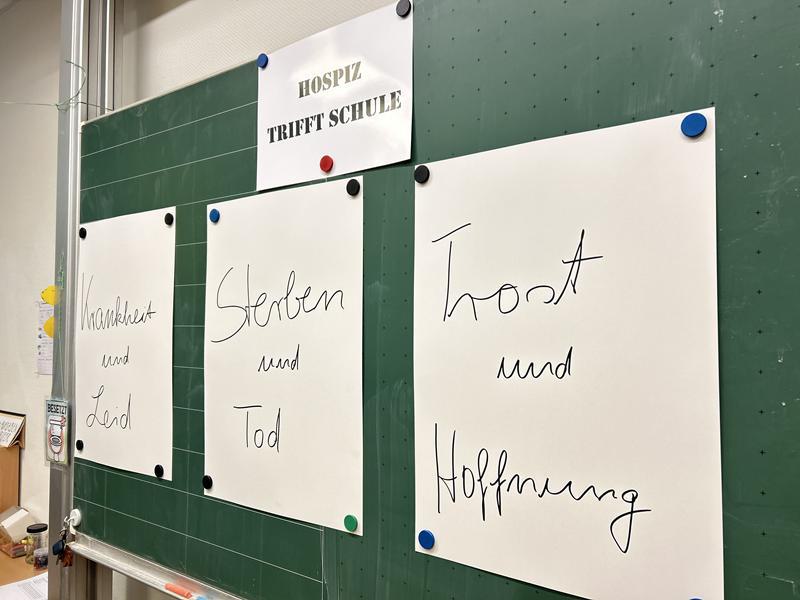 HOSPIZ
TRIFFT SCHULE
Krankheit
und
Leid
Sterben
und
Tod
Trost
und
Hoffnung
BESETZT